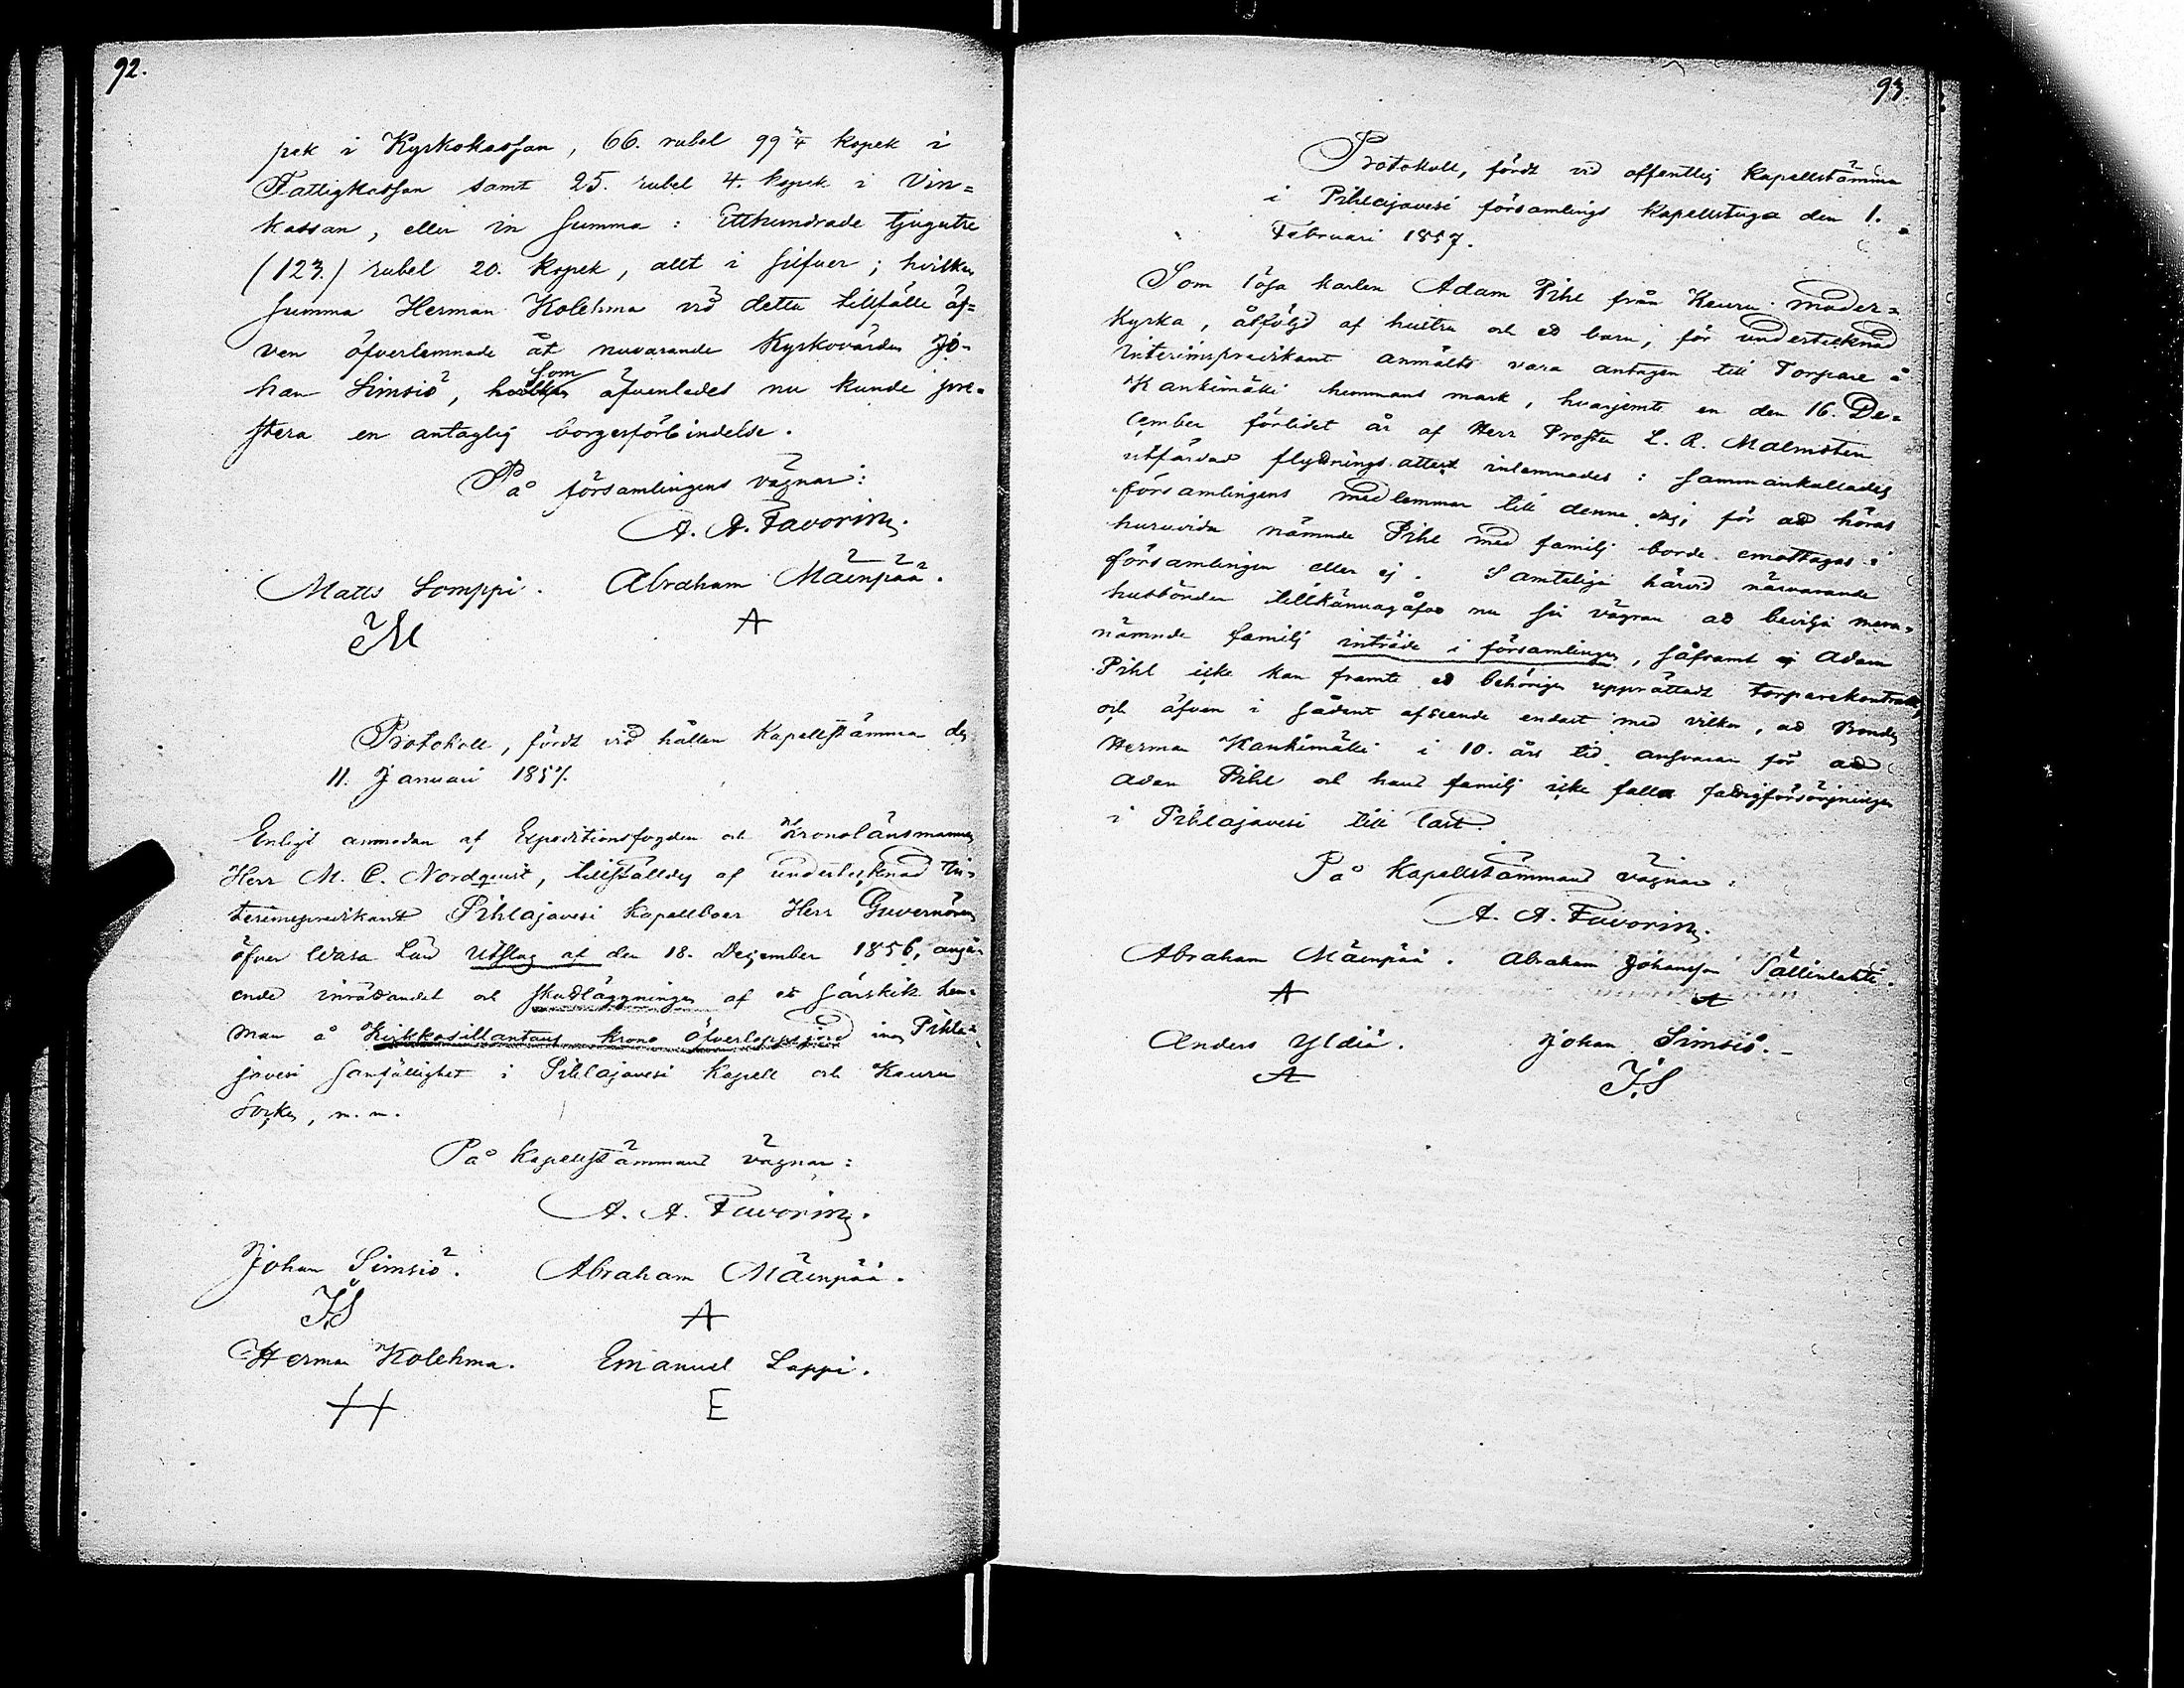 92.
pek i Kyrkokassan, 66. rubel 99 3/4 kopek i
Fattigkassan samt 25. rubel 4. kopek i Vin=
kassan, eller in Summa: Etthundrade tjugutre
(123.) rubel 20. kopek, allt i silfver; hvilken
summa Herman Kolehma vid detta tillfälle äf=
ven öfverlemnade åt nuvarande Kyrkovärden Jo-
han Simsiö, som äfvenledes nu kunde pre=
stera en antaglig borgesförbindelse.
På församlingens vägnar:
A. A. Favorin.
Matts Lomppi. Abraham Mäenpää.
M A
Protokoll, fördt vid hållen Kapellstämma den
11. Januari 1857.
Enligt anmodan af Expeditionsfogden och Kronolänsmannen
Herr M. C. Nordqvist, tillställdes af undertecknad In=
terimspredikant Pihlajavesi Kapellboer Herr Guvernörens
öfver Wasa Län Utslag af den 18. December 1856, angå=
ende inrättandet och skattläggningen af ett särskilt hem=
man å Kirkkosillantaus krono öfverloppsjord inom Pihla=
javesi samfällighet i Pihlajavesi Kapell och Keuru
Socken, m. m.
På Kapellstämmans vägnar:
A. A. Favorin.
Johan Simsiö. Abraham Mäenpää.
J.S A
Herman Kolehma. Emanuel Lappi.
H E
93.
Protokoll, fördt vid offentlig Kapellstämma
i Pihlajavesi församlings Kapellstuga den 1.
Februari 1857.
Som lösa karlen Adam Pihl från Keuru moder=
kyrka, åtföljd af hustru och ett barn, för undertecknad
Interimspredikant anmälts vara antagen till Torpare å
Kankimäki hemmans mark, hvarjemte en den 16. De=
cember förlidet år af Herr Prosten L. R. Malmsten
utfärdad flyttnings attest inlemnades: sammankallades
församlingens medlemmar till denne dag, för att höras
huruvida nämnde Pihl med familj borde emottagas i
församlingen eller ej. Samtelige härvid närvarande
husbönder tillkännagåfvo nu sin vägran att bevilja mera=
nämnde familj inträde i församlingen, såframt ej Adam
Pihl icke kan framte ett behörigen upprättadt torparekontrakt,
och äfven i sådant afseende endast med vilkor, att Bonden
Herman Kankimäki i 10. års tid ansvarar för att
Adam Pihl och hans familj icke falla fattigförsörjningen
i Pihlajavesi till last.
På Kapellstämmans vägnar:
A. A. Favorin.
Abraham Mäenpää. Abraham Johansson Sällinlahti.
A A
Anders Yldiä. Johan Simsiö.
A J.S